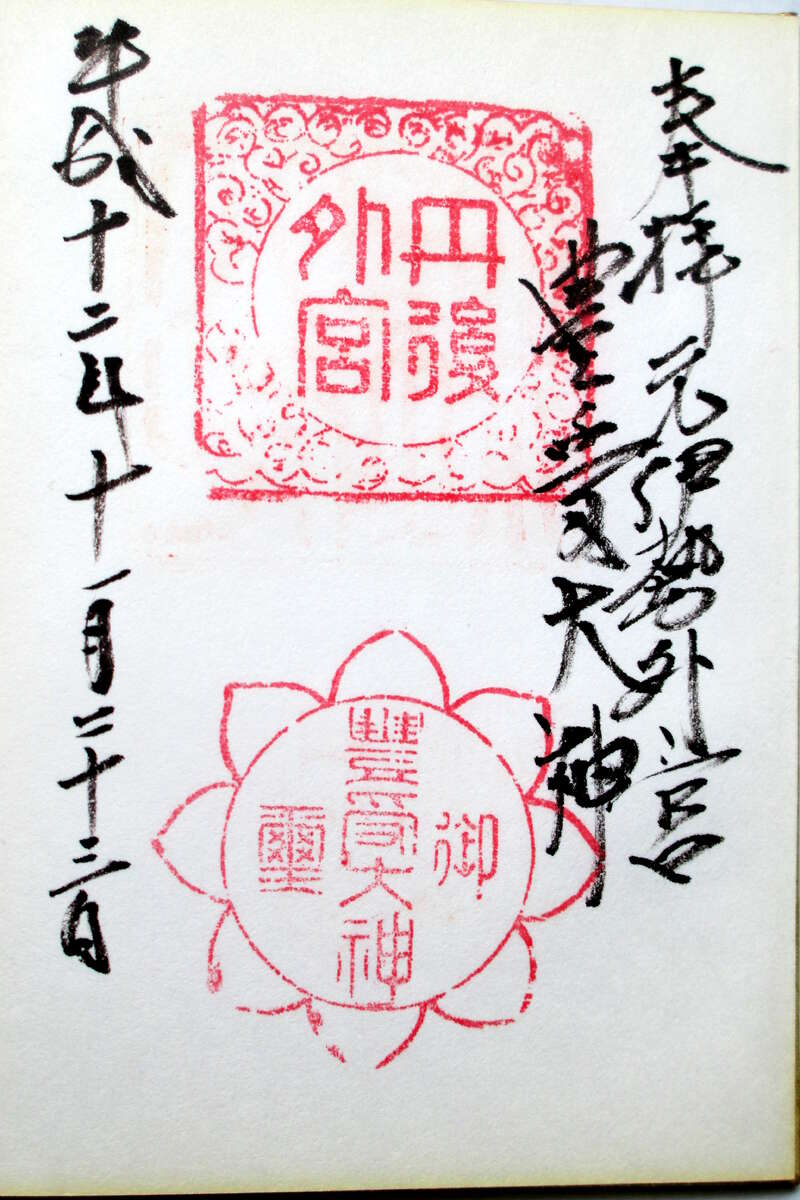 奉拝 元伊勢外宮
豊受大神
丹後
外宮
御
豐受大神
璽
平成十二年十一月二十三日